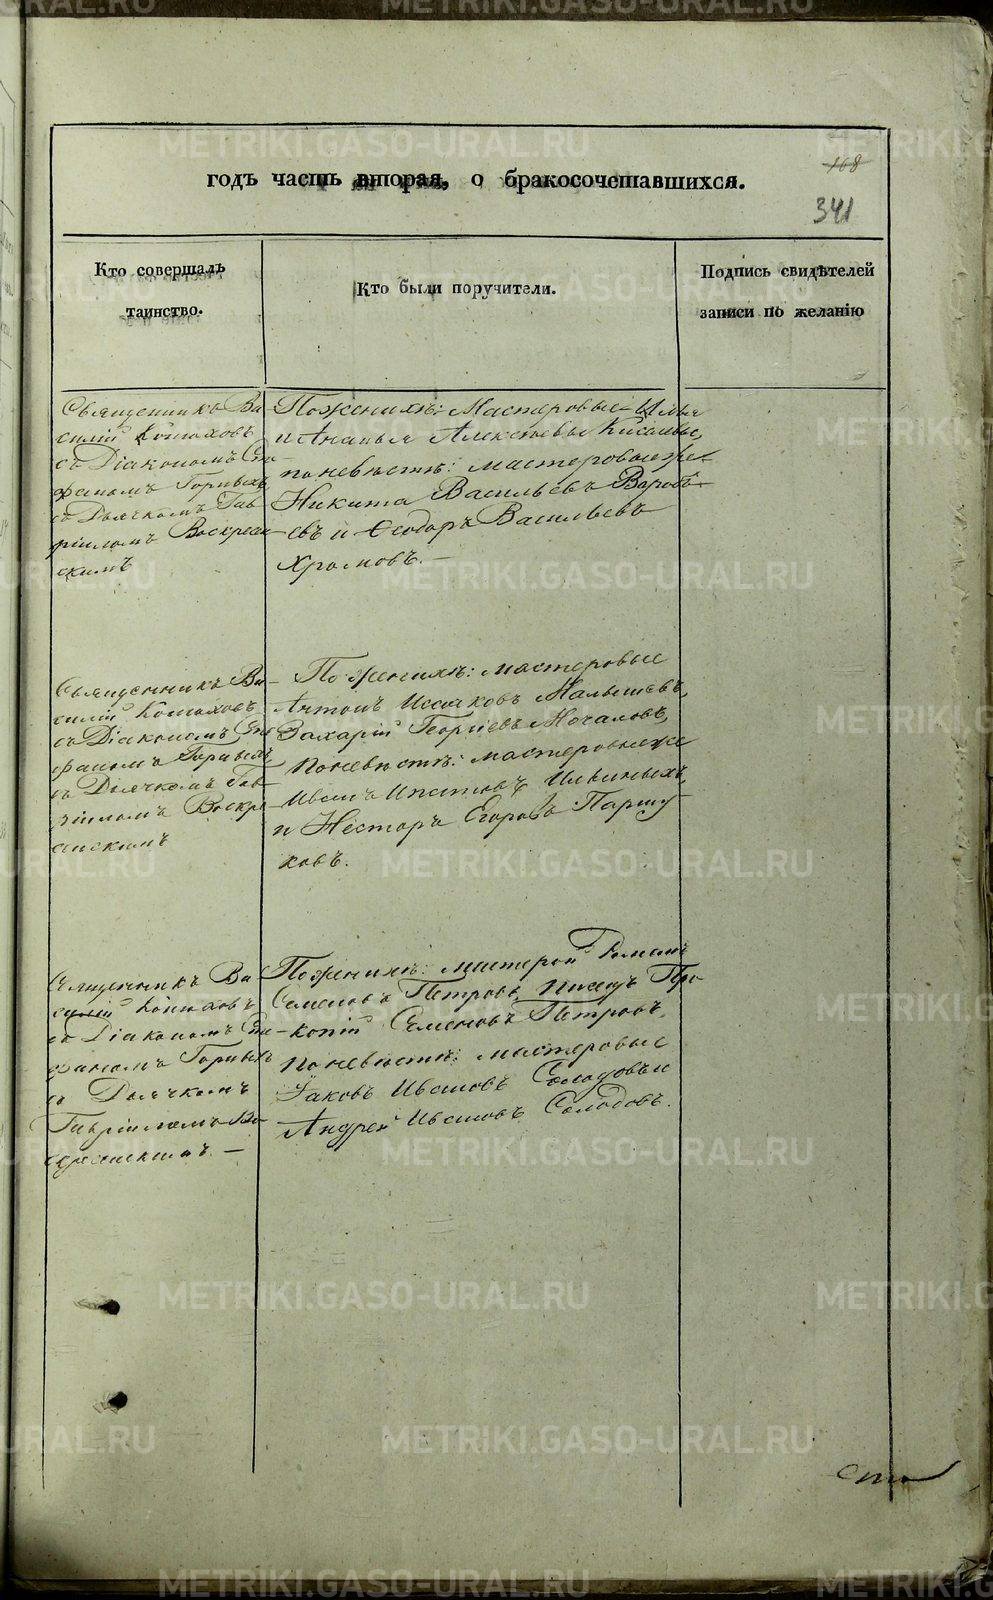 168
341
годъ часть вторая, о бракосочетавшихся.
Кто совершалъ
таинство.
Кто были поручители.
Подпись свидѣтелей
записи по желанію
Священникъ Ва
силій Конюховъ
съ Діакономъ Сте
фаномъ Горныхъ
съ Дьячкомъ Гав
ріиломъ Воскресен
скимъ
По женихѣ: Мастеровые Илья
и Ананья Алексѣевы
по невѣстѣ: мастеровые же
Никита Васильевъ Воробь
евъ и Ѳеодоръ Васильевъ
Хромовъ.
Священникъ Ва
силій Конюховъ
съ Діакономъ Сте
фаномъ Горныхъ
съ Дьячкомъ Гав
ріиломъ Воскре
сенскимъ
По женихѣ: мастеровые
Антонъ Исааковъ Малышевъ,
Захарій Георгіевъ Мочаловъ,
по невѣстѣ: мастеровые же
Иванъ Ипатовъ Ильиныхъ
и Несторъ Егоровъ Паршу
ковъ.
Священникъ Ва
силій Конюховъ
съ Діакономъ Сте
фаномъ Горныхъ
съ Дьячкомъ
Гавріиломъ Во
скресенскимъ. —
По женихѣ: мастеровой Романъ
Семеновъ Петровъ, писецъ Про
копій Семеновъ Петровъ,
по невѣстѣ: мастеровые
Яковъ Ивановъ Солодовъ и
Андрей Ивановъ Солодовъ.
METRIKI.GASO-URAL.RU